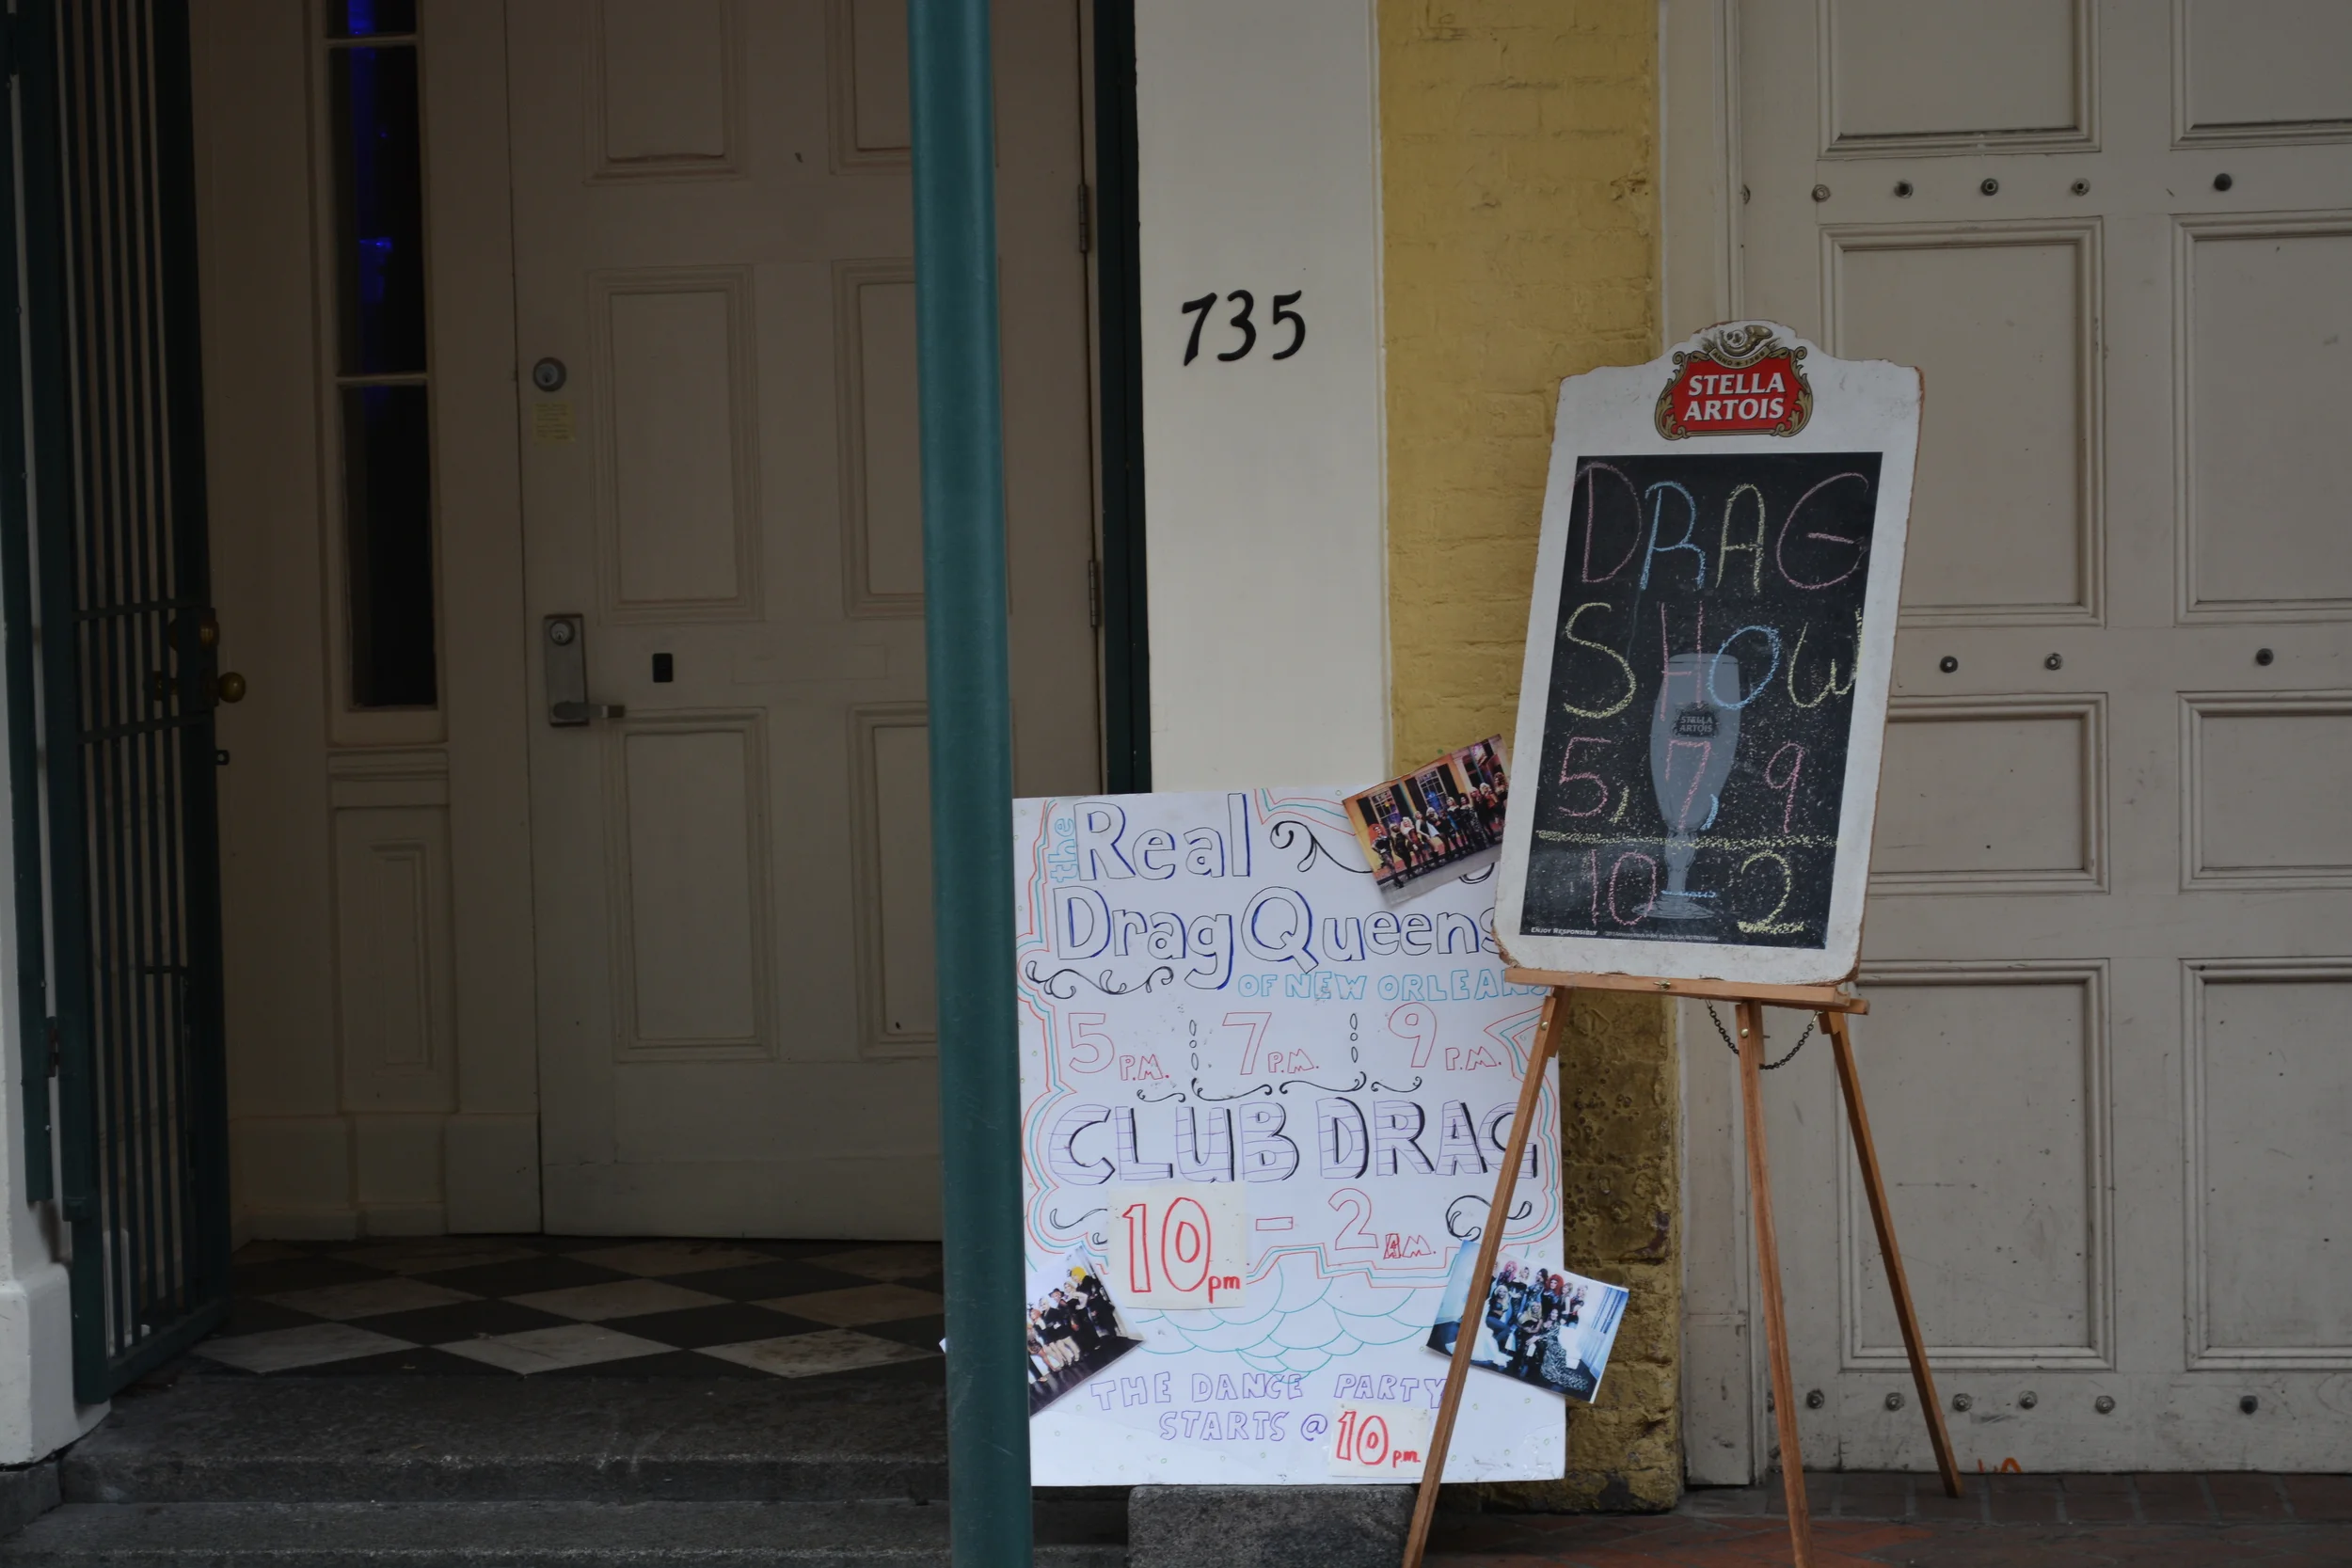 735
STELLA
ARTOIS
DRAG
SHOW
STELLA
ARTOIS
5, 7, 9
10-2
ENJOY RESPONSIBLY
the Real
Drag Queens
OF NEW ORLEANS
5 P.M. 7 P.M. 9 P.M.
CLUB DRAG
10pm - 2 A.M.
THE DANCE PARTY
STARTS @ 10 p.m.